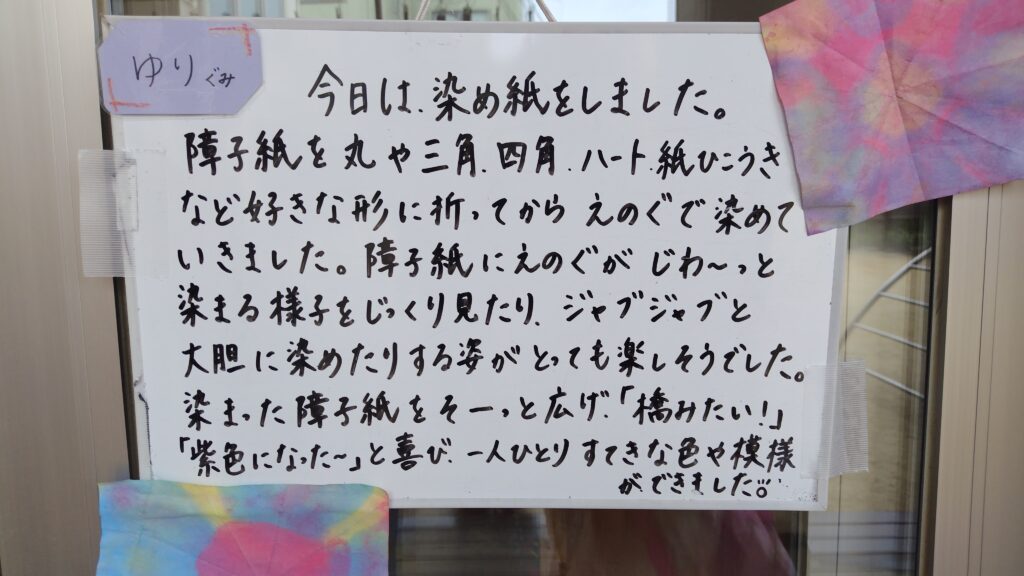 ゆりぐみ
今日は、染め紙をしました。
障子紙を丸や三角、四角、ハート、紙ひこうき
など好きな形に折ってから えのぐで染めて
いきました。障子紙にえのぐが じわ〜っと
染まる様子をじっくり見たり、ジャブジャブと
大胆に染めたりする姿がとっても楽しそうでした。
染まった障子紙をそーっと広げ、「橋みたい!」
「紫色になった〜」と喜び、一人ひとりすてきな色や模様
ができました